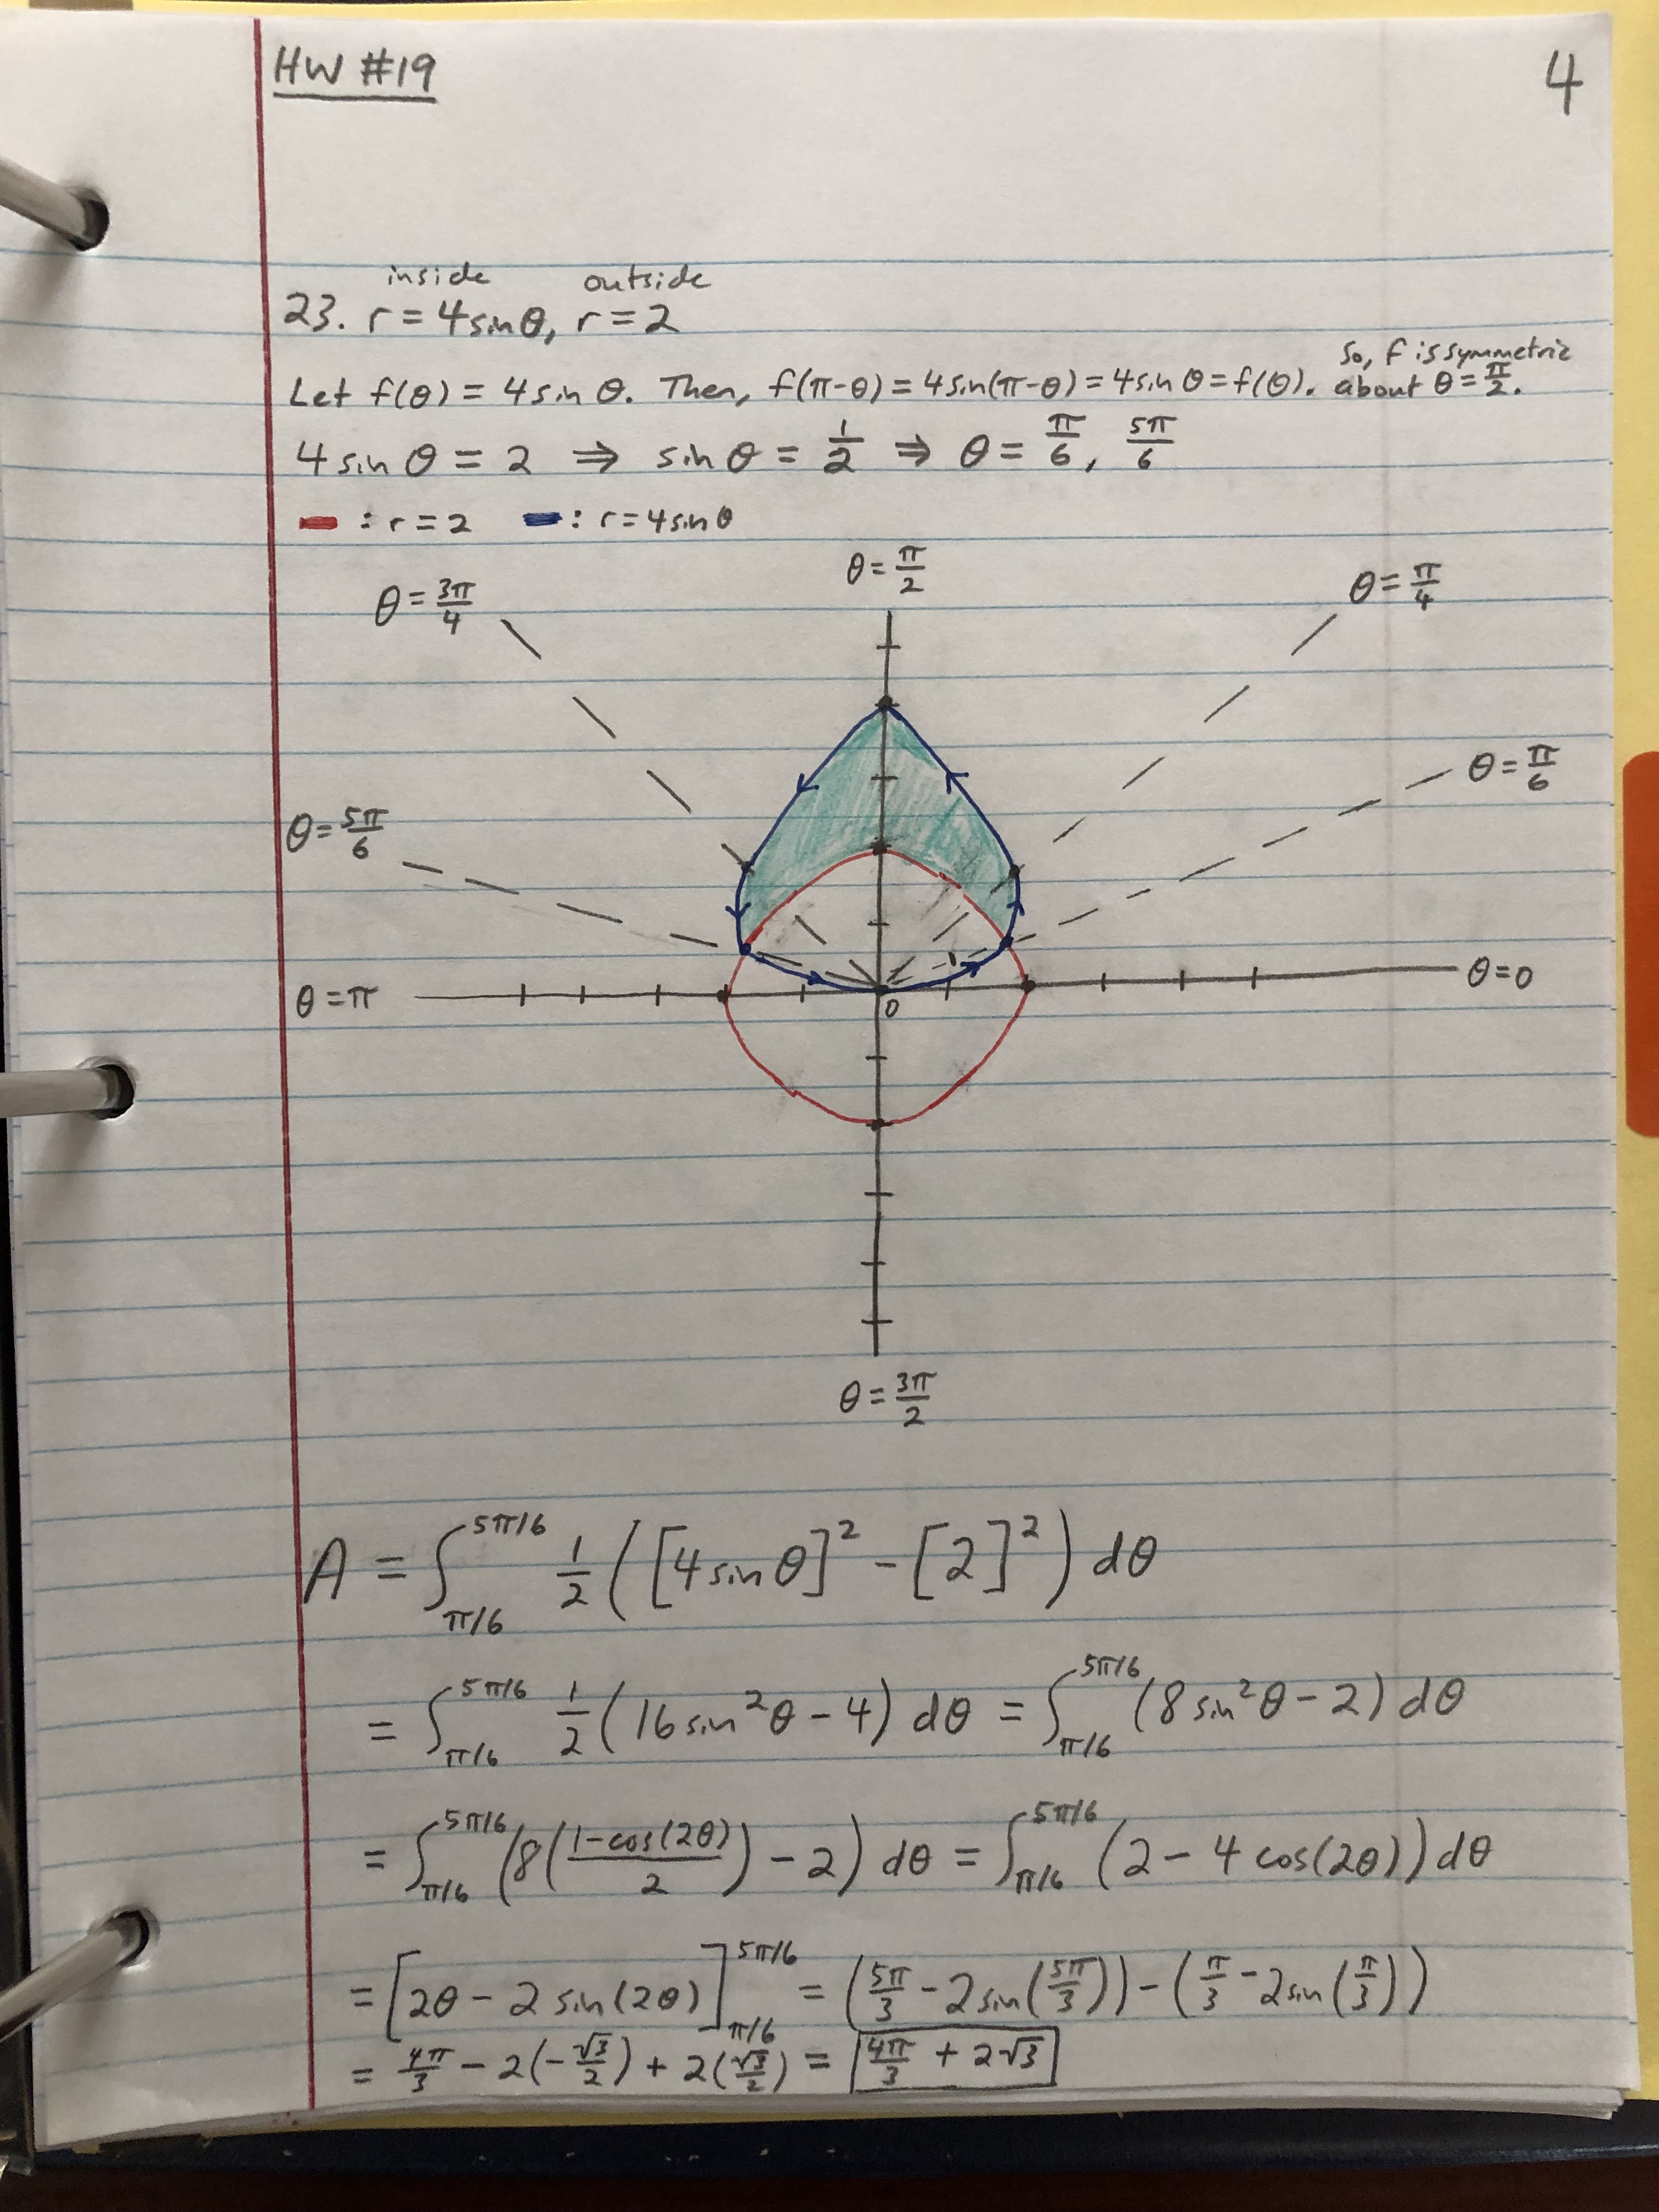 HW #19
4
inside outside
23. r = 4sinθ, r = 2
So, f is symmetric
Let f(θ) = 4sin θ. Then, f(π-θ) = 4sin(π-θ) = 4sin θ = f(θ). about θ = π/2.
4 sin θ = 2 ⇒ sin θ = 1/2 ⇒ θ = π/6, 5π/6
: r = 2 : r = 4sin θ
θ = π/2
θ = 3π/4
θ = π/4
θ = π/6
θ = 5π/6
θ = π
θ = 0
0
θ = 3π/2
A = ∫_{π/6}^{5π/6} 1/2 ([4 sin θ]² - [2]²) dθ
= ∫_{π/6}^{5π/6} 1/2 (16 sin²θ - 4) dθ = ∫_{π/6}^{5π/6} (8 sin²θ - 2) dθ
= ∫_{π/6}^{5π/6} (8((1-cos(2θ))/2) - 2) dθ = ∫_{π/6}^{5π/6} (2 - 4 cos(2θ)) dθ
= [2θ - 2 sin(2θ)]_{π/6}^{5π/6} = (5π/3 - 2sin(5π/3)) - (π/3 - 2sin(π/3))
= 4π/3 - 2(-√3/2) + 2(√3/2) = 4π/3 + 2√3